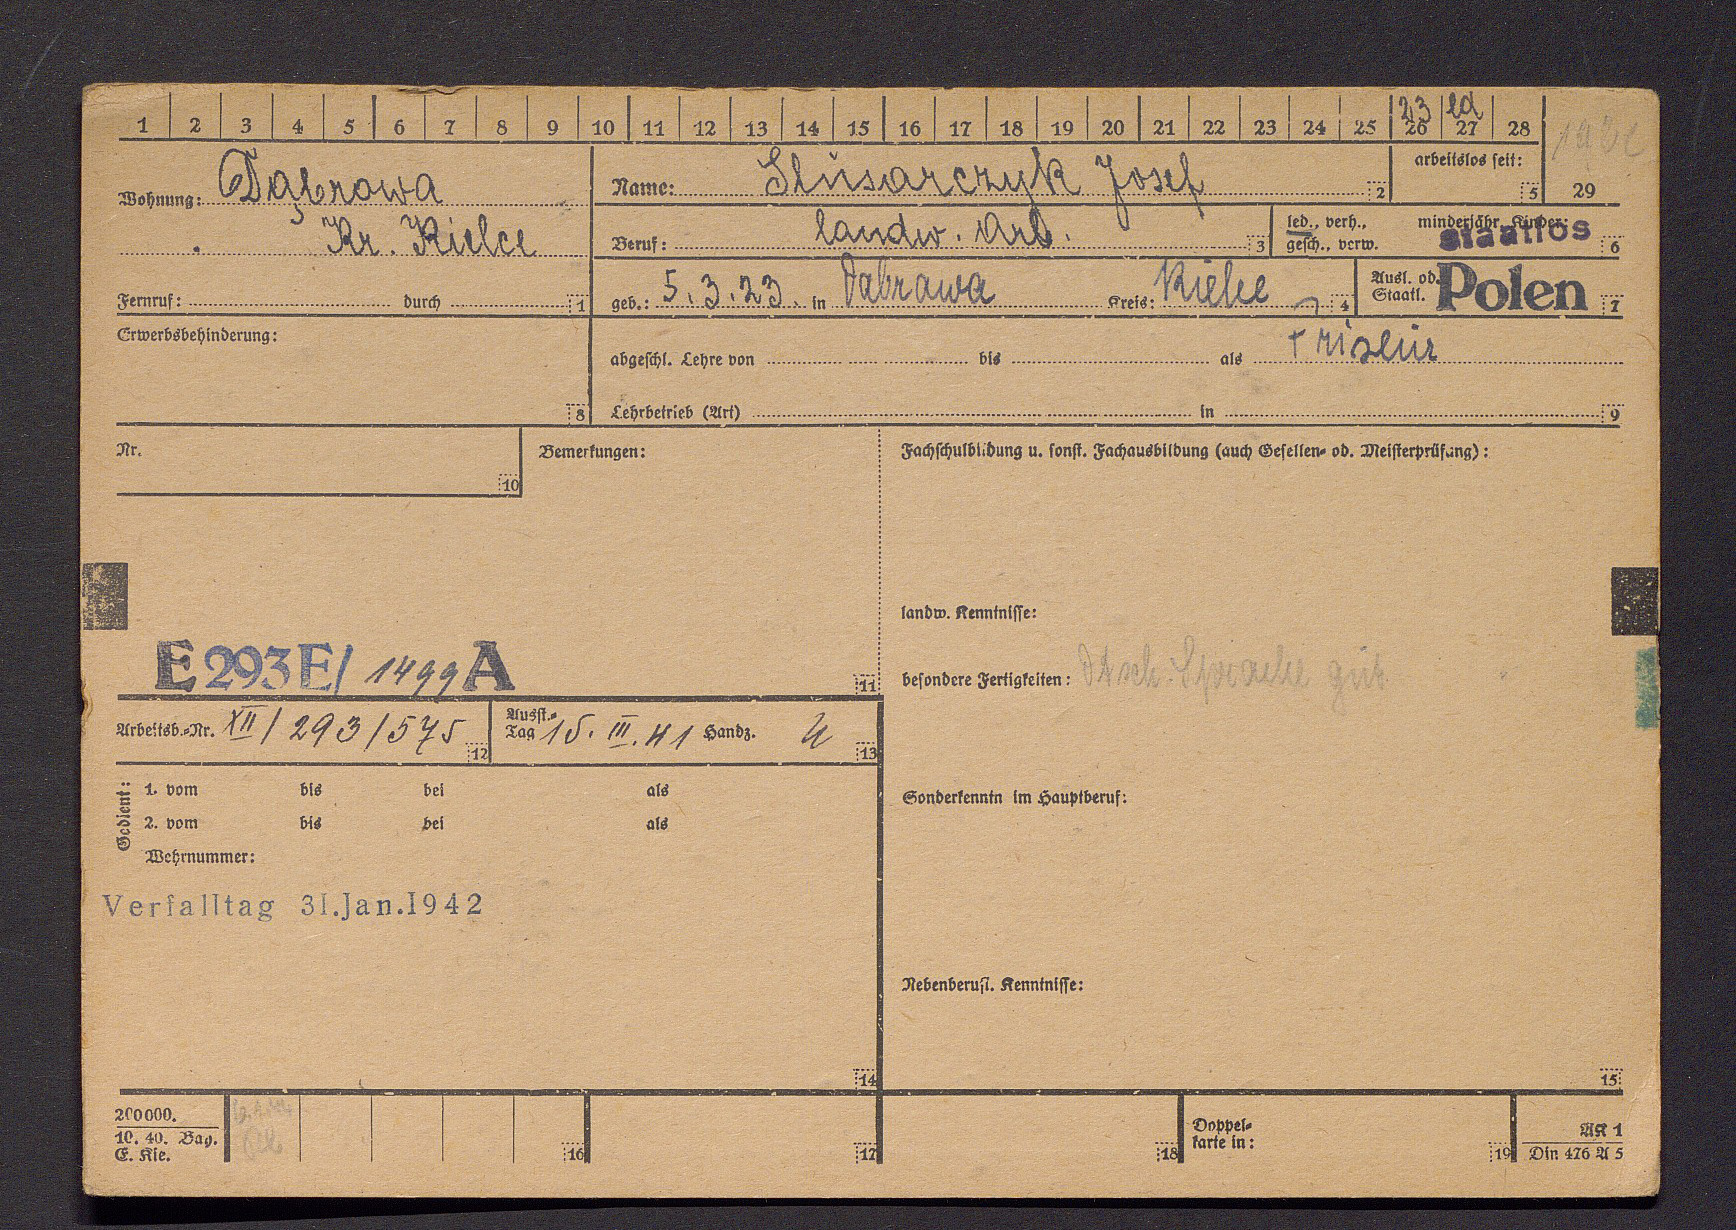 1 2 3 4 5 6 7 8 9 10 11 12 13 14 15 16 17 18 19 20 21 22 23 24 25 26 27 28
23 led
29
Wohnung: Dąbrowa
Kr. Kielce
Fernruf: durch 1
Name: Slusarczyk Josef 2
arbeitslos seit: 5
Beruf: landw. Arb. 3
led., verh., gesch., verw.
minderjähr. Kinder: 6
staatlos
geb.: 5.3.23 in Dabrawa Kreis: Kielce 4
Ausl. od. Staatl. Polen 7
Erwerbsbehinderung:
8
abgeschl. Lehre von bis als Friseur
Lehrbetrieb (Art) in 9
Nr.
10
Bemerkungen:
Fachschulbildung u. sonst. Fachausbildung (auch Gesellen- od. Meisterprüfung):
landw. Kenntnisse:
E 293 E/ 1499 A
11
besondere Fertigkeiten: dtsch. Sprache gut
Arbeitsb.-Nr. XII/293/575 12
Ausst.-Tag 15. III. 41 Handz. 13
Gedient:
1. vom bis bei als
2. vom bis bei als
Wehrnummer:
Sonderkenntn im Hauptberuf:
Verfalltag 31.Jan.1942
Nebenberufl. Kenntnisse:
14
15
200000.
10. 40. Bag.
E. Kie.
16
17
18
Doppel-
karte in:
19
AK 1
Din 476 A 5